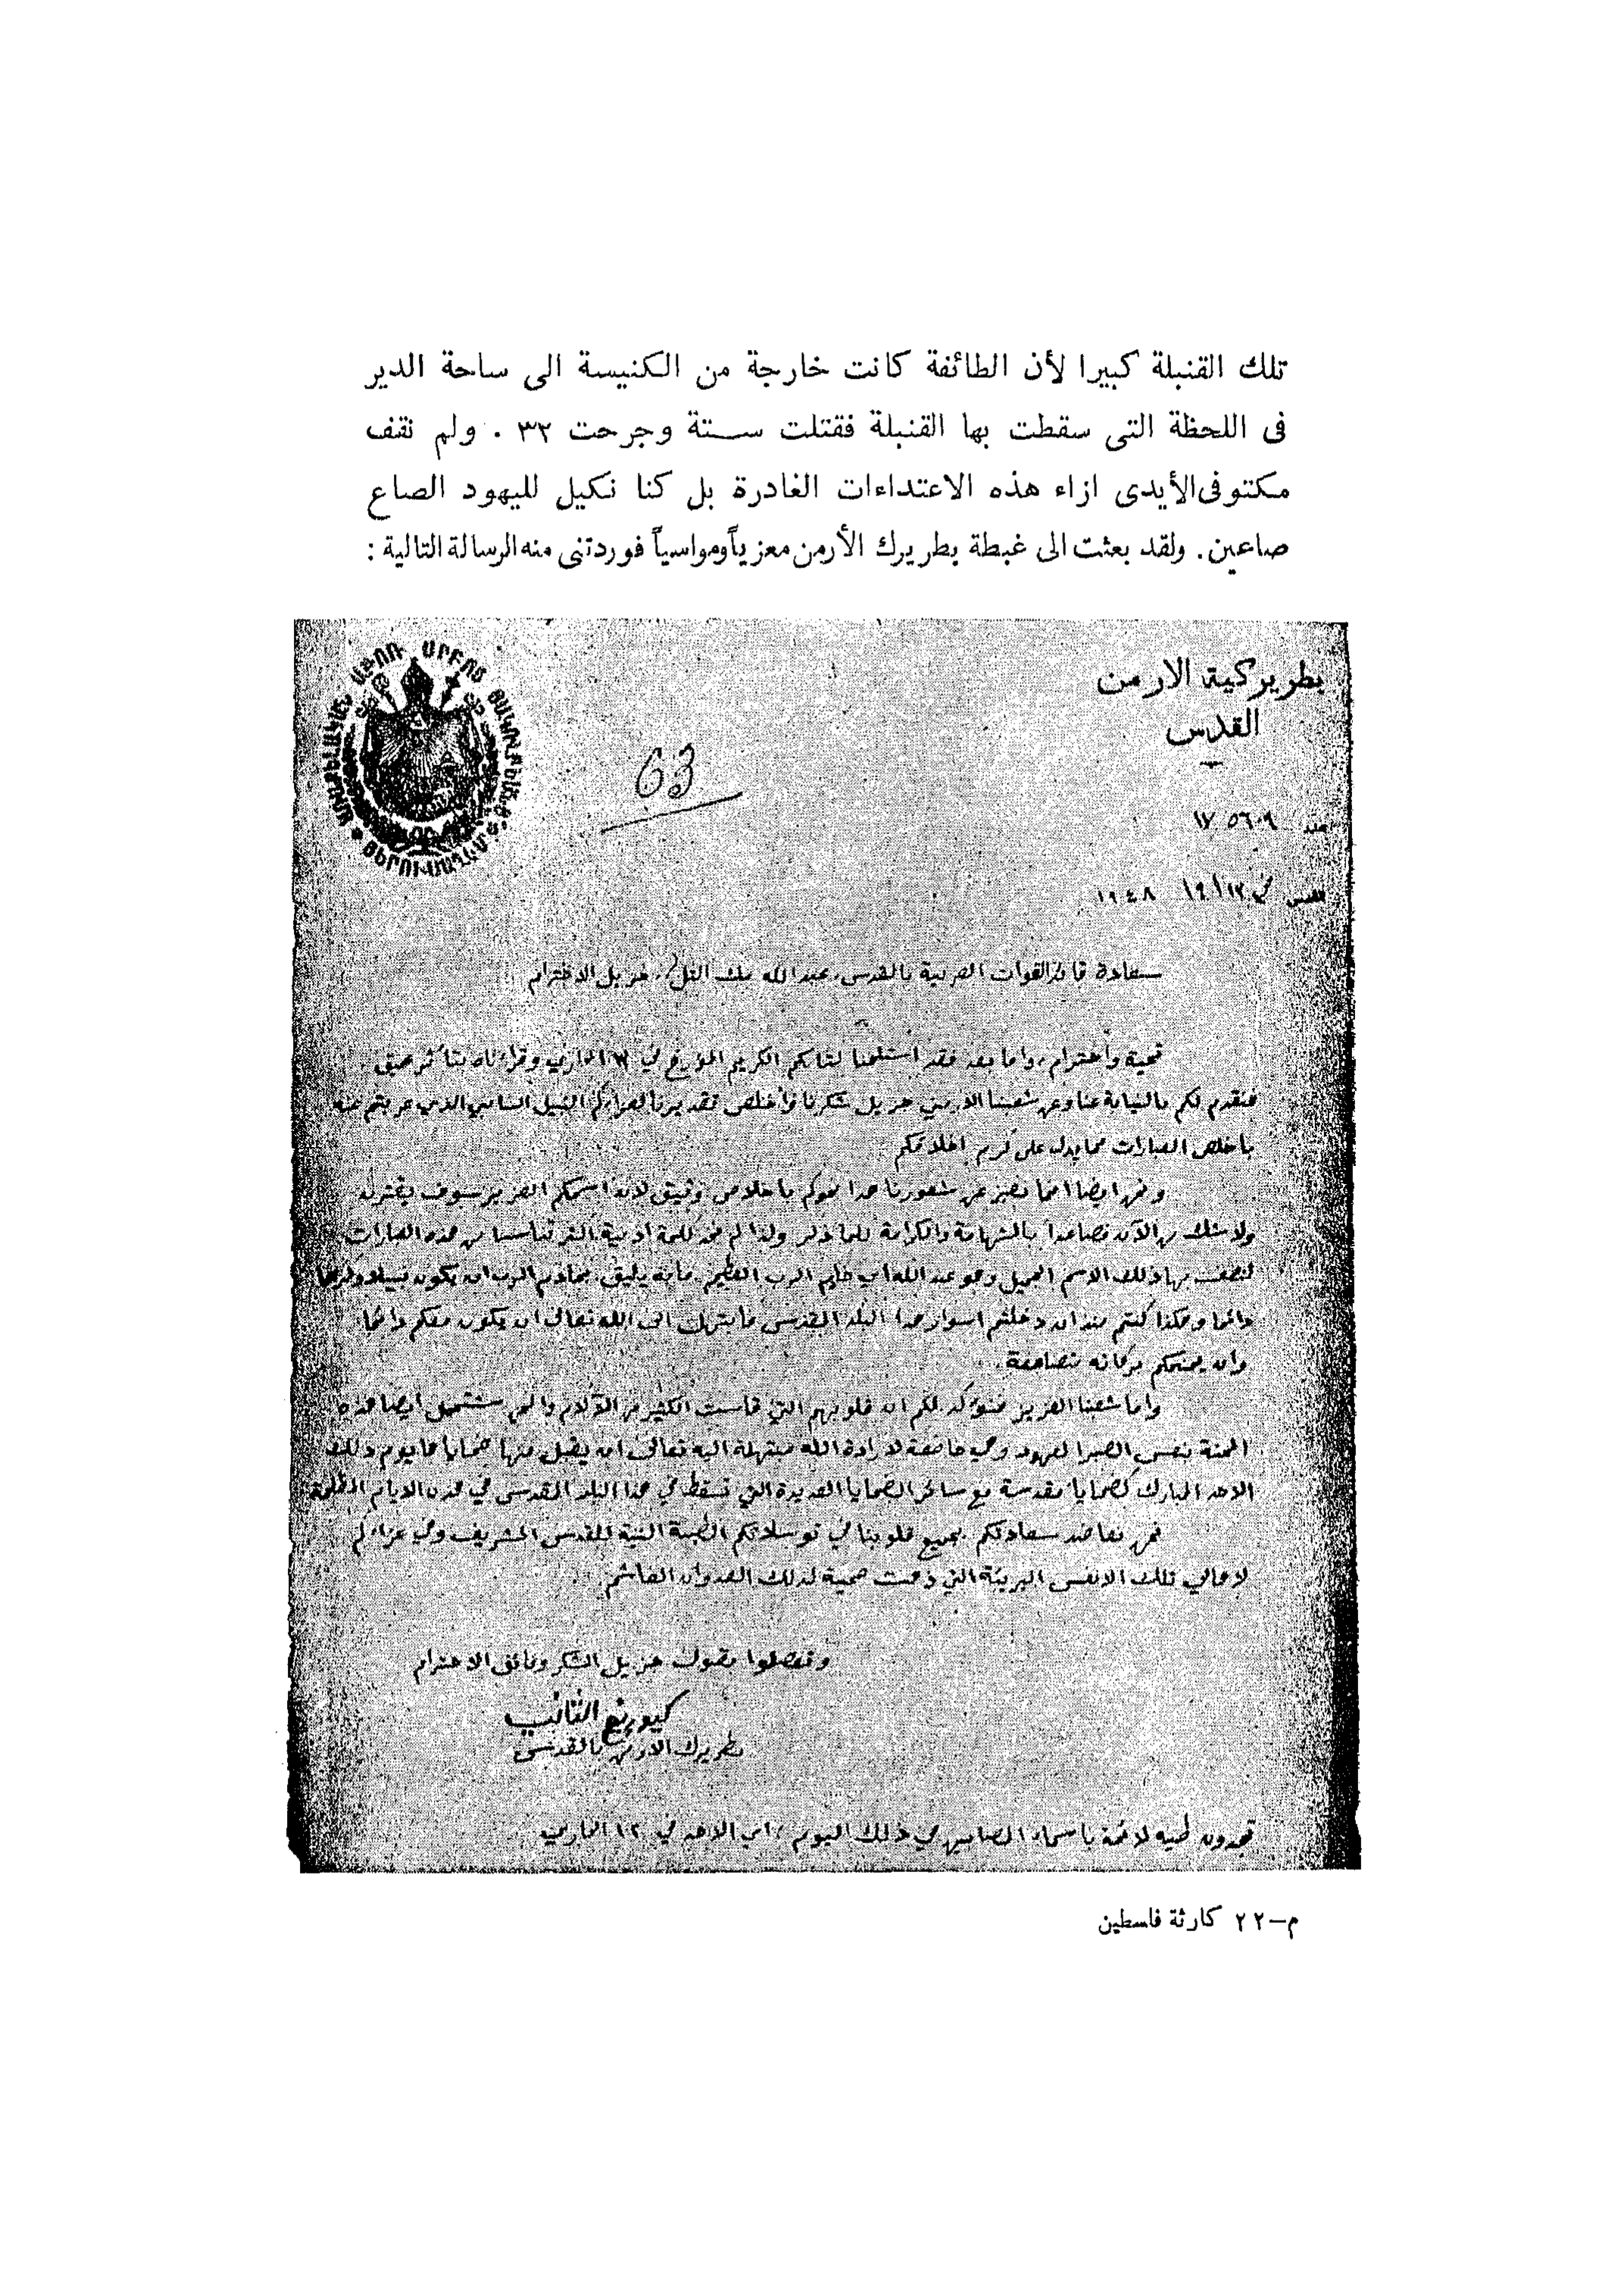 تلك القنبلة كبيرا لأن الطائفة كانت خارجة من الكنيسة الى ساحة الدير
فى اللحظة التى سقطت بها القنبلة فقتلت ستة وجرحت ٣٢ . ولم نقف
مكتوفى الأيدى ازاء هذه الاعتداءات الغادرة بل كنا نكيل لليهود الصاع
صاعين. ولقد بعثت الى غبطة بطريرك الأرمن معزياً ومواسياً فوردتنى منه الرسالة التالية :
بطريركية الارمن
القدس
63
عدد
القدس في ١٩٤٨
سعادة قائد القوات العربية بالقدس، عبد الله بك التل، جزيل الاحترام
تحية واحترام، واما بعد فقد استلمنا كتابكم الكريم المؤرخ في الجاري وقرأناه بتأثر عميق
فنقدم لكم بالنيابة عنا وعن شعبنا الارمني جزيل شكرنا واخلص تقديرنا لعزائكم النبيل السامي الذي عربتم عنه
باخلص العبارات مما يدل على كريم اخلاقكم
ونحن ايضا انما نعبر عن شعورنا هذا نحوكم باخلاص وثيق لان اسمكم العزيز سوف يقترن
ولا شك من الآن فصاعدا بالشهامة والكرامة كلما ذكر ولذا لم نجد كلمة اوفية اكثر تناسبا من هذه العبارات
لنصف بها ذلك الاسم الجميل وهو عبد الله اي خادم الرب العظيم فانه يليق بخادم الرب ان يكون نبيلا
دائما وهكذا كنتم منذ ان دخلتم اسوار هذا البلد المقدس فابتهل الى الله تعالى ان يكون معكم دائما
وان يمنحكم بركاته مضاعفة.
واما شعبنا العزيز فنؤكد لكم ان قلوبهم التي قاست الكثير من الآلام والمحن ستتحمل ايضا هذه
المحنة بنفس الصبر المعهود وهي خاضعة لارادة الله مبتهلة اليه تعالى ان يقبل منها ضحايا يوم ذلك
الاحد المبارك كضحايا مقدسة مع سائر الضحايا العديدة التي تسقط في هذا البلد المقدس في هذه الايام المظلمة
نحن نعاضد سعادتكم بجميع قلوبنا في توسلاتكم للقدس الشريف وفي عزائكم
لاهالي تلك الانفس البريئة التي ذهبت ضحية لذلك العدوان الغاشم.
وتفضلوا بقبول جزيل الشكر وفائق الاحترام
كيوريغ الثاني
بطريرك الارمن بالقدس
تجدون طيه لائحة باسماء المصابين في ذلك اليوم، اي الاحد في ١٢ الجاري
م—٢٢ كارثة فلسطين